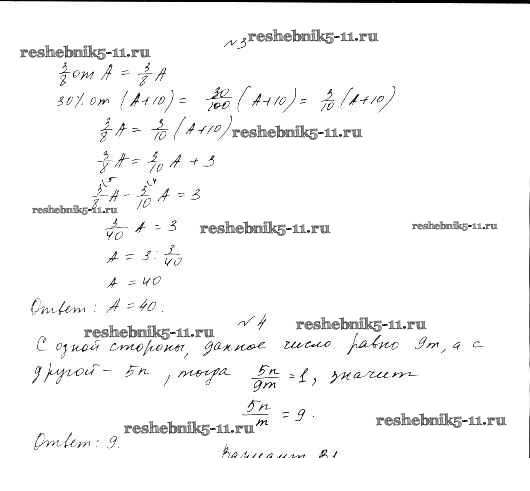 №3 reshebnik5-11.ru
reshebnik5-11.ru
3/8 от A = 3/8 A
30% от (A+10) = 30/100 (A+10) = 3/10 (A+10)
3/8 A = 3/10 (A+10) reshebnik5-11.ru
3/8 A = 3/10 A + 3
3/8 \5 A - 3/10 \4 A = 3
reshebnik5-11.ru
3/40 A = 3 reshebnik5-11.ru reshebnik5-11.ru
A = 3 : 3/40
A = 40
Ответ: A = 40.
reshebnik5-11.ru №4 reshebnik5-11.ru
С одной стороны, данное число равно 9m, а с
другой - 5n, тогда 5n/9m = 1, значит
5n/m = 9.
reshebnik5-11.ru reshebnik5-11.ru
Ответ: 9.
Вариант В1